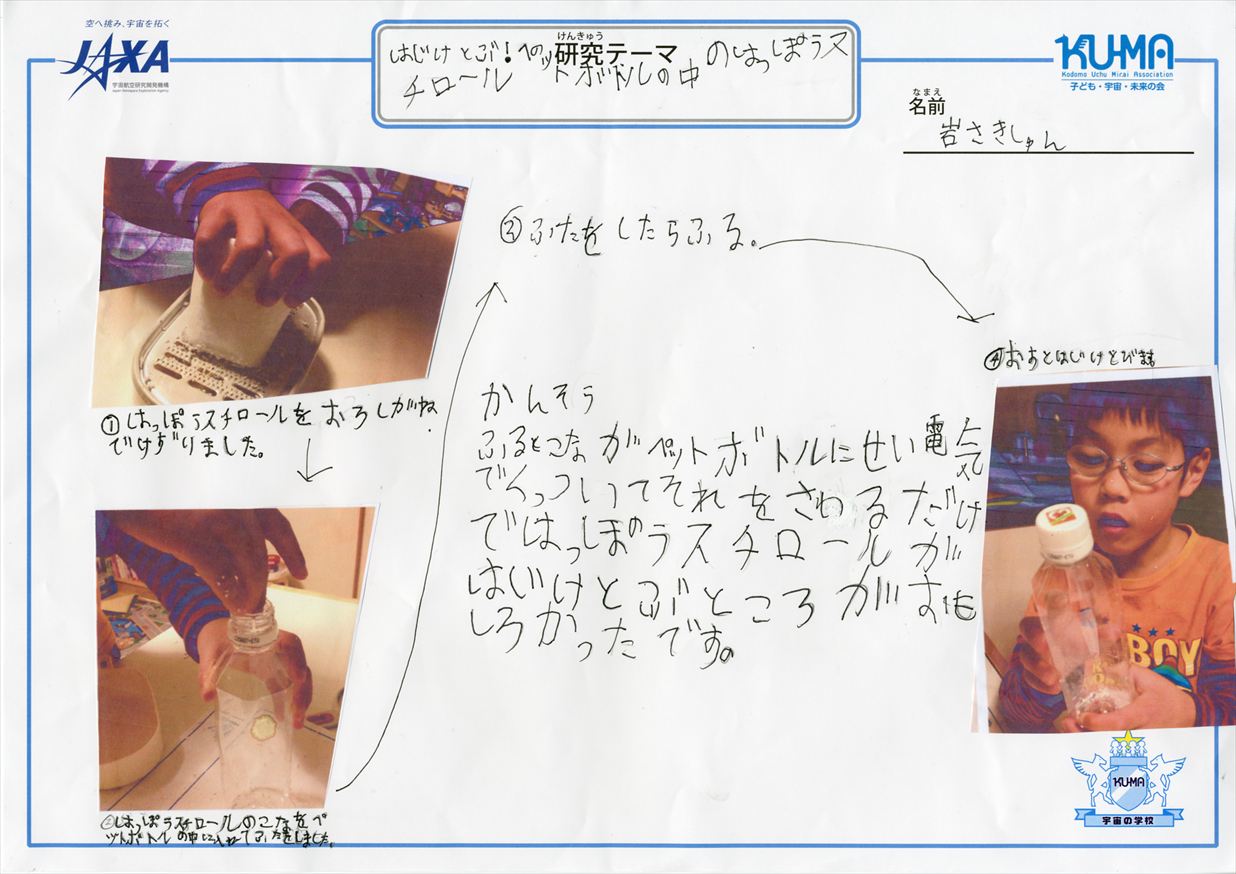 空へ挑み、宇宙を拓く
JAXA
宇宙航空研究開発機構
Japan Aerospace Exploration Agency
けんきゅう
研究テーマ
はじけとぶ!ペッ
トボトルの中
のはっぽうス
チロール
KUMA
Kodomo Uchu Mirai Association
子ども・宇宙・未来の会
なまえ
名前
岩さきしゅん
①はっぽうスチロールをおろしがね
でけずりました。
②はっぽうスチロールのこなをペ
ットボトルの中に入れてふたをしました。
③ふたをしたらふる。
④おすとはじけとびます
かんそう
ふるとこながペットボトルにせい電気
でくっついてそれをさわるだけ
ではっぽうスチロールが
はじけとぶところがおも
しろかったです。
BOY
KUMA
宇宙の学校